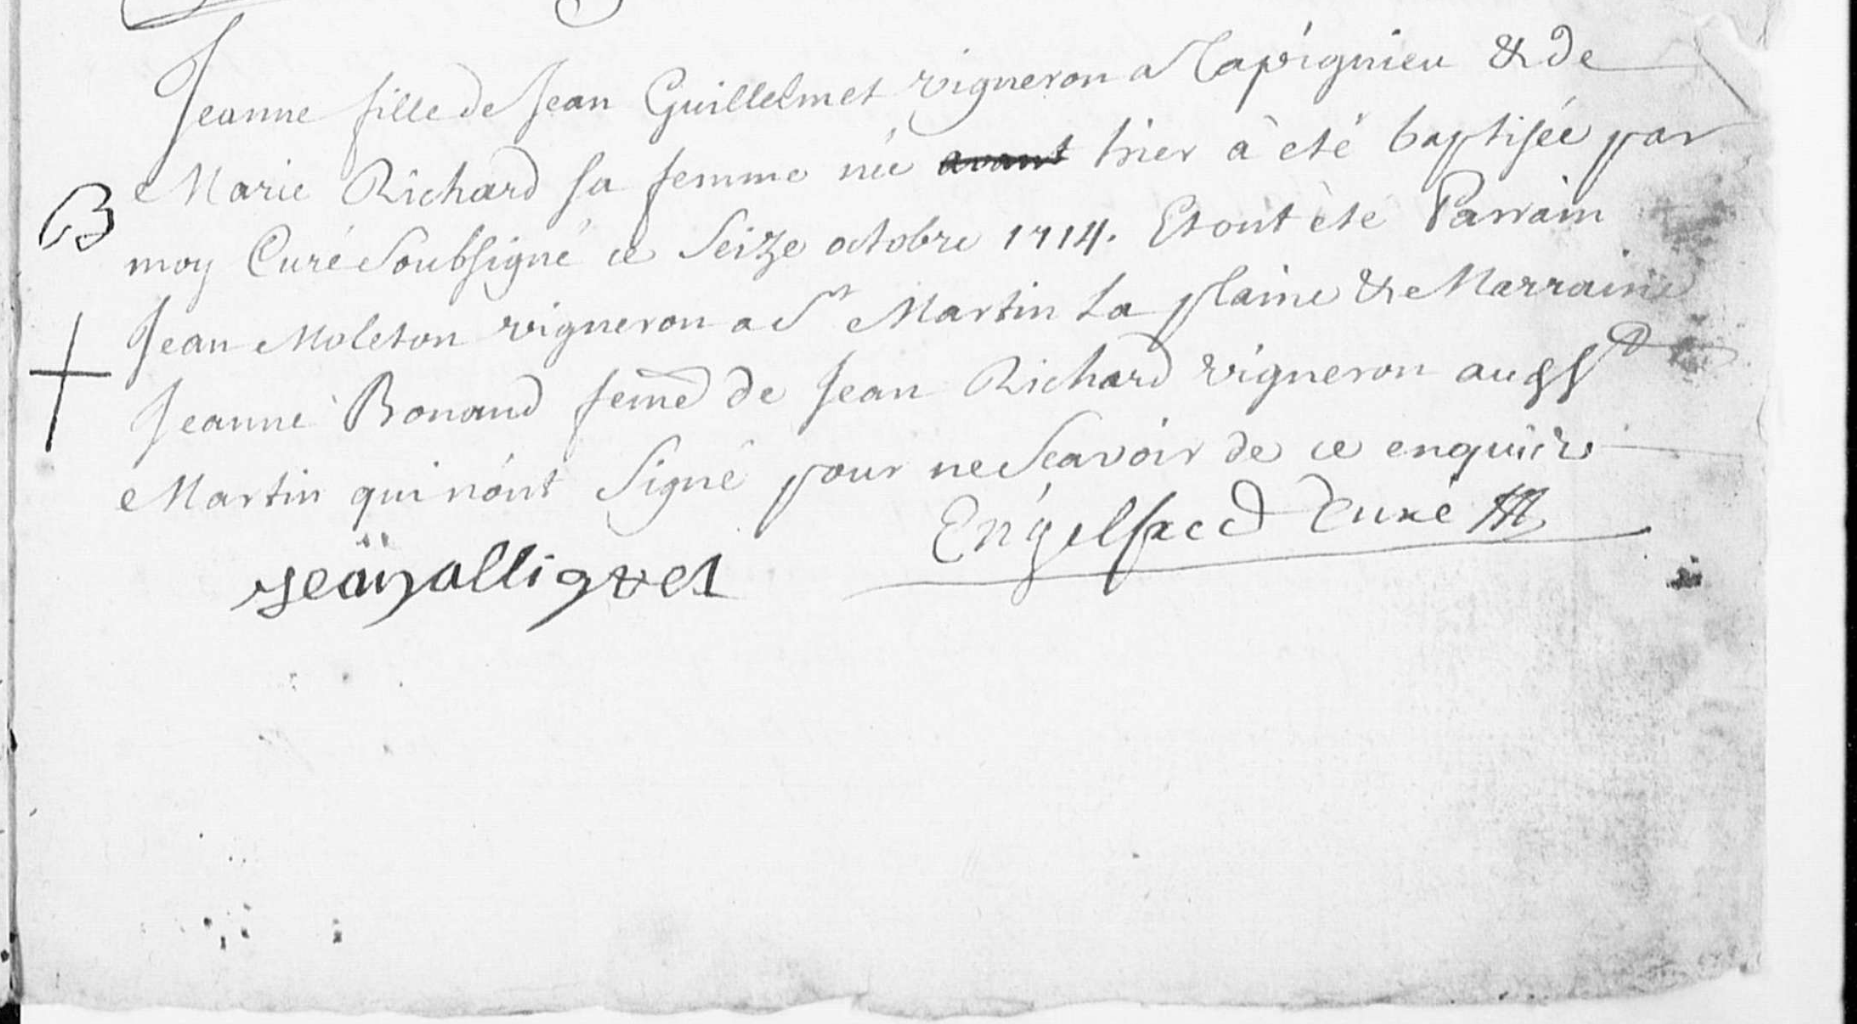 Jeanne fille de Jean Guillelmet vigneron a Tapignieu & de
B
Marie Richard sa femme née avant hier à èté baptisée par
moy Curé Soubsigné ce Seize octobre 1714. Et ont èté Parrain
Jean Moleton vigneron a St Martin La plaine & Marraine
Jeanne Bonand femẽ de Jean Richard vigneron aud St
Martin qui n'ont Signé pour ne Scavoir de ce enquis
Curé